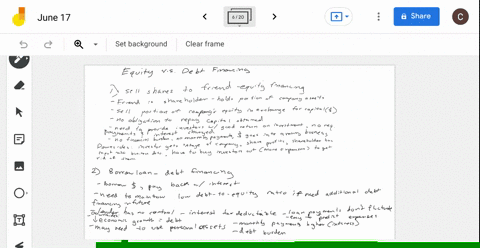 June 17
6 / 20
Share
C
Set background
Clear frame
Equity v.s Debt Financing
1) Sell shares to friend - equity financing
- Friend is shareholder - holds portion of company assets
- Sell portion of company's equity in exchange for capital ($)
- No obligation to repay capital obtained
- need to provide investors w/ good return on investment, no
payments / interest charged
- no financial burden, no monthly payments, $ goes into running business
Downsides: investor gets % of company, share profits, shareholder has
input into, have to buy investors out (more expensive) to get
rid of them
2) Borrow loan - debt financing
- borrow $, pay back w/ interest
- need to maintain low debt-to-equity ratio if need additional debt
financing in future
- lender has no control - interest tax deductable - loan payments don't fluctuate
- easy to predict expenses
economic growth: debt
- monthly payments higher
- may need to use personal assets
- debt burden